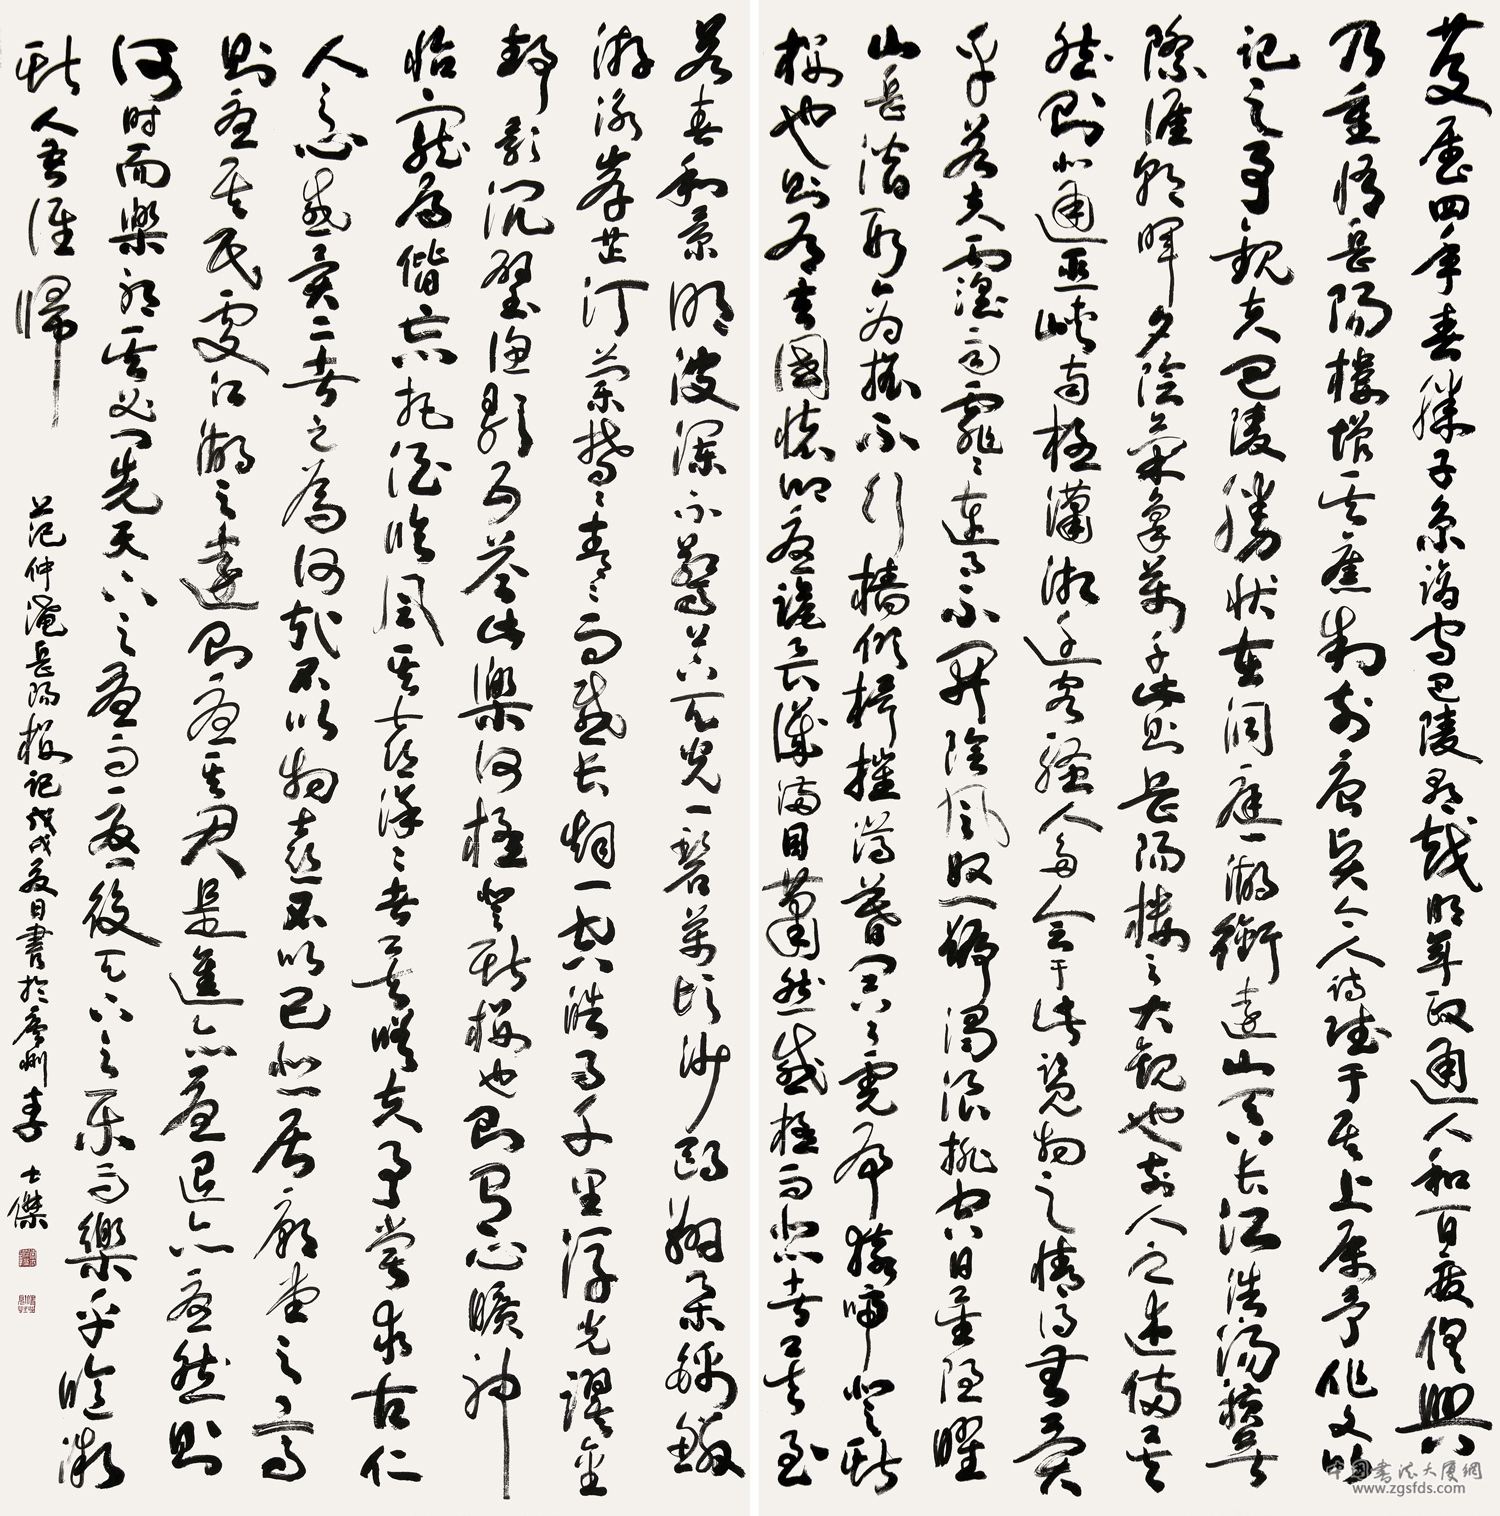 慶曆四年春滕子京謫守巴陵郡越明年政通人和百廢俱興
乃重修岳陽樓增其舊制刻唐賢今人詩賦于其上屬予作文以
記之予觀夫巴陵勝狀在洞庭一湖銜遠山吞长江浩湯橫無
際涯朝暉夕陰氣象萬千此則岳陽樓之大觀也前人之述備矣
然則北通巫峽南極瀟湘遷客騷人多會于此覽物之情得無異
乎若夫霪雨霏霏連月不開陰風怒號濁浪排空日星隱曜
山岳潛形商旅不行檣傾楫摧薄暮冥冥虎嘯猿啼登斯
樓也則有去國懷鄉憂讒畏譏滿目蕭然感極而悲者矣至
若春和景明波瀾不驚上下天光一碧萬頃沙鷗翔集錦鱗
游泳岸芷汀蘭鬱鬱青青而或长烟一空皓月千里浮光躍金
靜影沉璧漁歌互答此樂何極登斯樓也則有心曠神
怡寵辱偕忘把酒臨風其喜洋洋者矣嗟夫予嘗求古仁
人之心或異二者之為何哉不以物喜不以己悲居廟堂之高
則憂其民處江湖之遠則憂其君是進亦憂退亦憂然則
何时而樂耶其必曰先天下之憂而憂後天下之樂而樂乎噫微
斯人吾誰歸
范仲淹岳陽樓記戊戌夏日書於州李士傑
中国书法大厦網
www.zgsfds.com